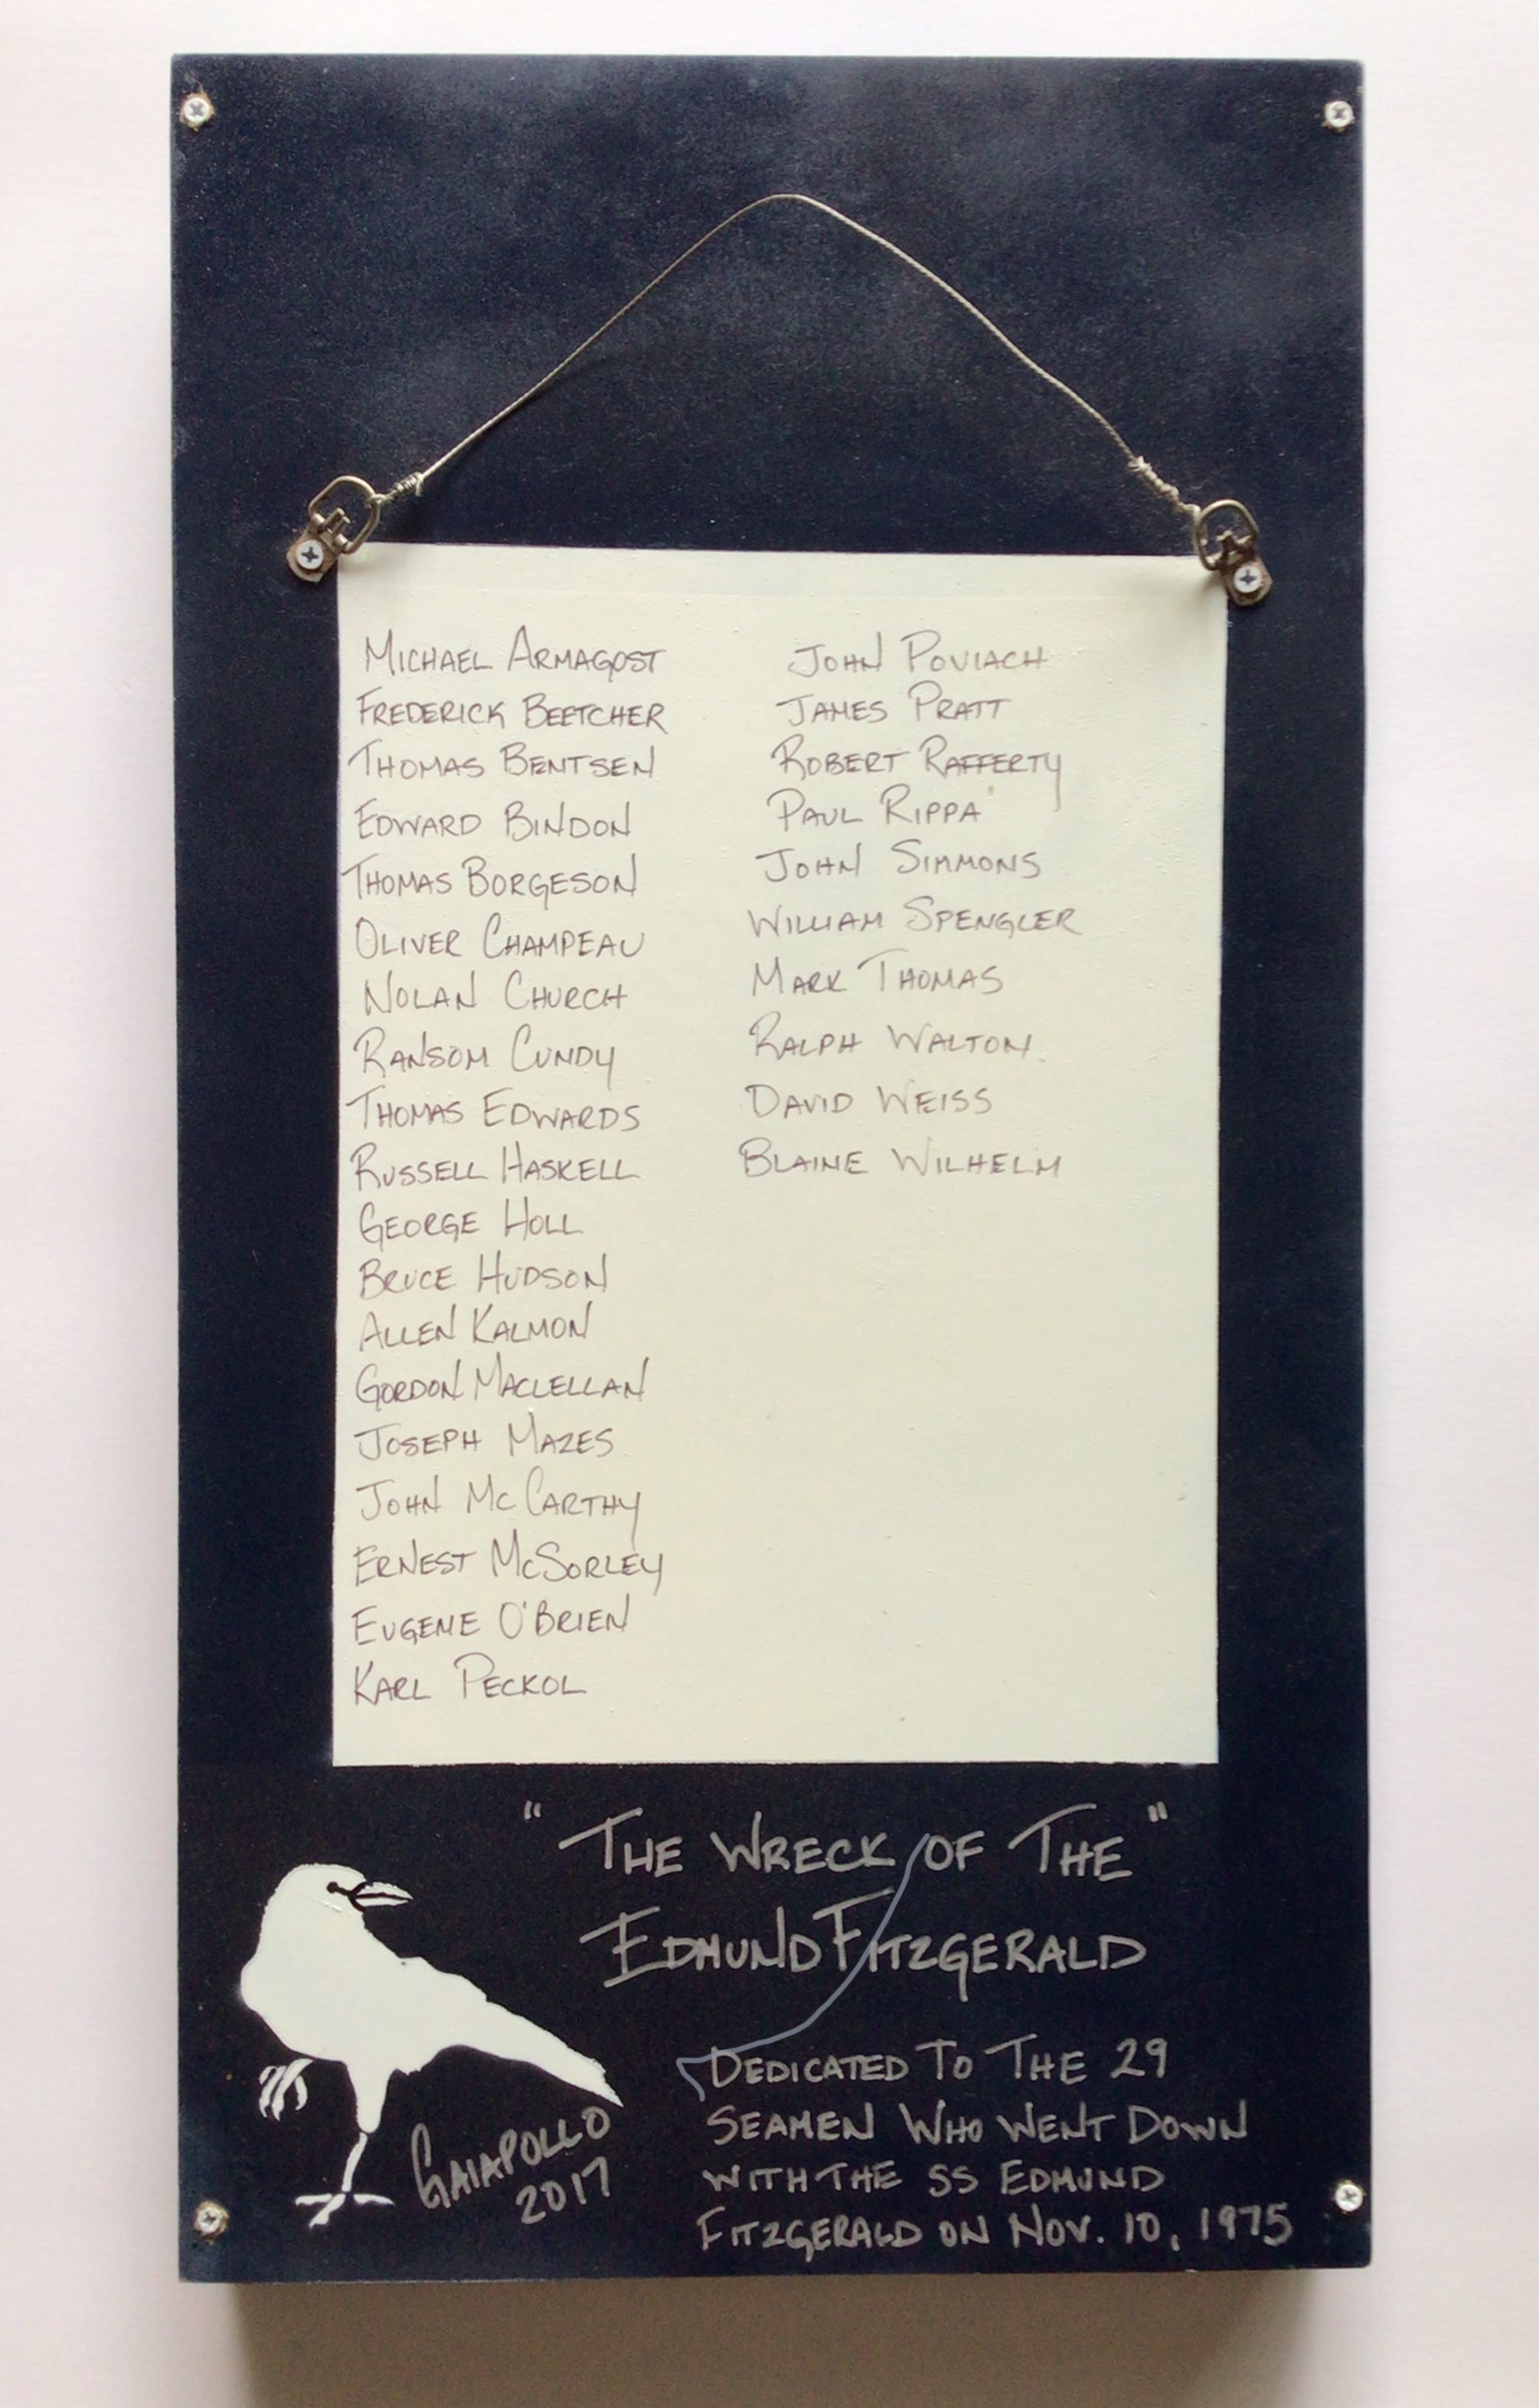 MICHAEL ARMAGOST
FREDERICK BEETCHER
THOMAS BENTSEN
EDWARD BINDON
THOMAS BORGESON
OLIVER CHAMPEAU
NOLAN CHURCH
RANSOM CUNDY
THOMAS EDWARDS
RUSSELL HASKELL
GEORGE HOLL
BRUCE HUDSON
ALLEN KALMON
GORDON MACLELLAN
JOSEPH MAZES
JOHN MCCARTHY
ERNEST MCSORLEY
EUGENE O'BRIEN
KARL PECKOL
JOHN POVIACH
JAMES PRATT
ROBERT RAFFERTY
PAUL RIPPA
JOHN SIMMONS
WILLIAM SPENGLER
MARK THOMAS
RALPH WALTON.
DAVID WEISS
BLAINE WILHELM
"THE WRECK OF THE"
EDMUND FITZGERALD
DEDICATED TO THE 29
SEAMEN WHO WENT DOWN
WITH THE SS EDMUND
FITZGERALD ON NOV. 10, 1975
GAIAPOLLO
2017